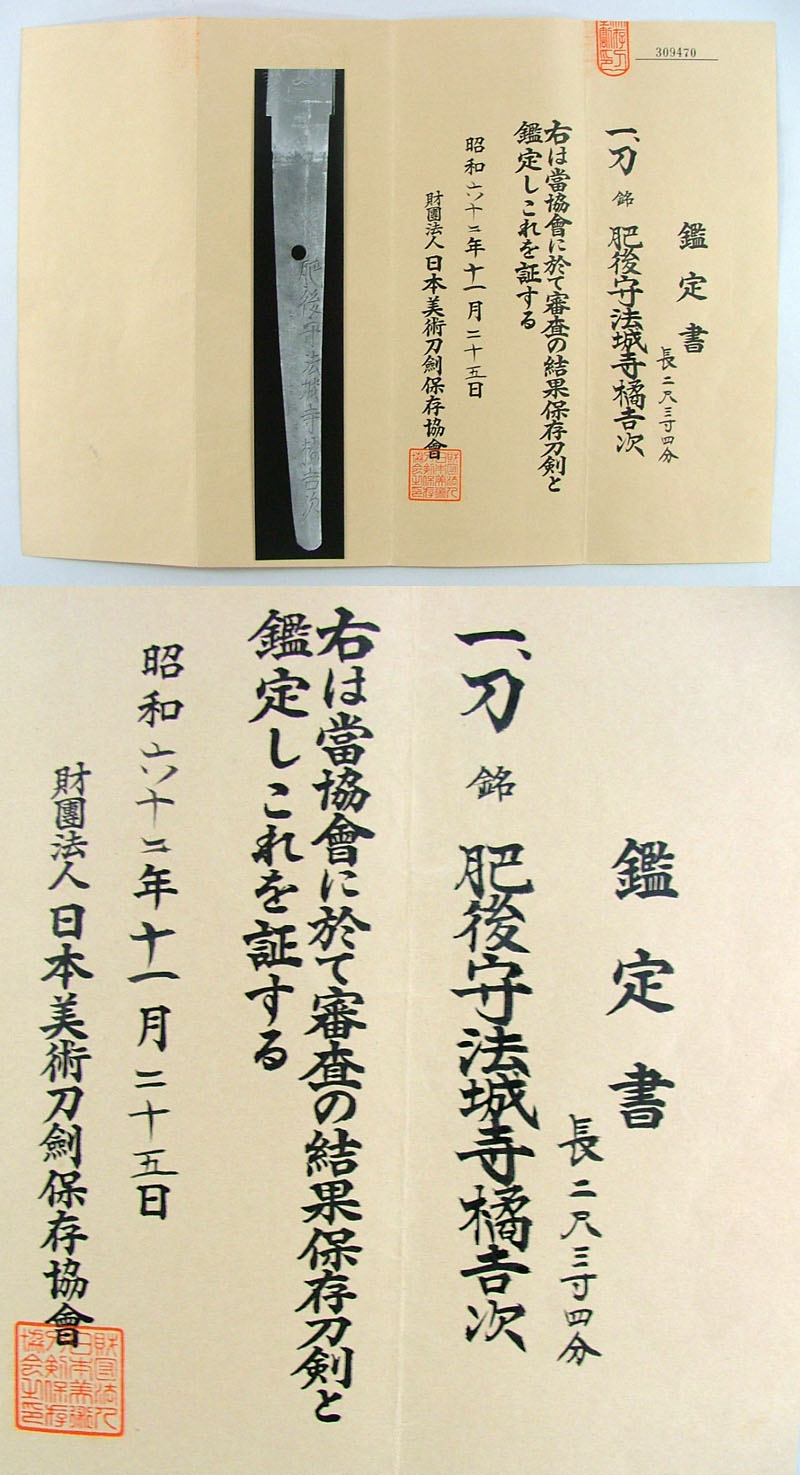 309470
鑑定書
長二尺三寸四分
一、刀 銘 肥後守法城寺橘吉次
右は當協會に於て審査の結果保存刀剣と
鑑定しこれを証する
昭和六十二年十一月二十五日
財團法人日本美術刀劍保存協會
肥後守法城寺橘吉次
鑑定書
長二尺三寸四分
一、刀 銘 肥後守法城寺橘吉次
右は當協會に於て審査の結果保存刀剣と
鑑定しこれを証する
昭和六十二年十一月二十五日
財團法人日本美術刀劍保存協會